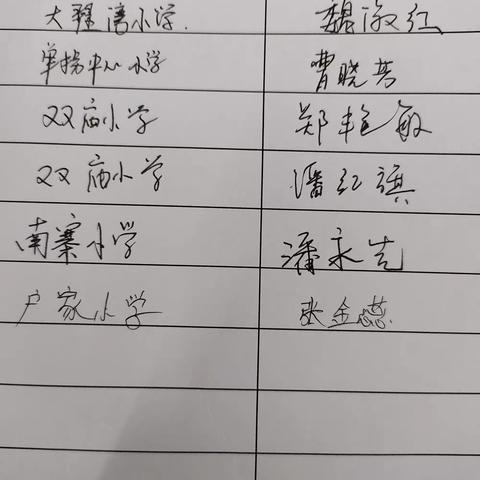 大张湾小学. 魏淑红
单拐中心小学 曹晓芳
双庙小学 郑艳敏
双庙小学 潘红旗
南寨小学 潘永先
户家小学 张金蕊